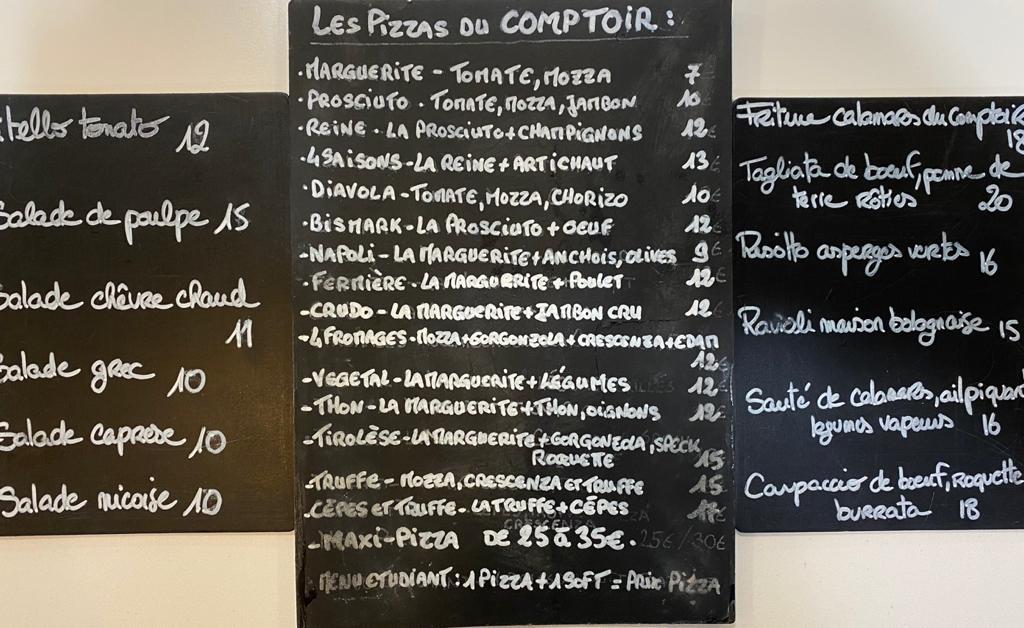 tello tonato 12
Salade de poulpe 15
Salade chêvre chaud
11
Salade grec 10
Salade caprese 10
Salade nicoise 10
LES PIZZAS DU COMPTOIR :
·MARGUERITE - TOMATE, MOZZA 7
·PROSCIUTO . TOMATE, MOZZA, JAMBON 10
·REINE - LA PROSCIUTO + CHAMPIGNONS 12€
·4 SAISONS - LA REINE + ARTICHAUT 13€
·DIAVOLA - TOMATE, MOZZA, CHORIZO 10€
·BISMARK - LA PROSCIUTO + OEUF 12€
-NAPOLI - LA MARGUERITE + ANCHOIS, OLIVES 9€
·FERMIÈRE - LA MARGUERITE + POULET 12€
-CRUDO - LA MARGUERITE + JAMBON CRU 12€
-4 FROMAGES - MOZZA + GORGONZOLA + CRESCENZA + EDAM
12€
-VEGETAL - LA MARGUERITE + LÉGUMES 12
-THON - LA MARGUERITE + THON, OIGNONS 12€
-TIROLÈSE - LA MARGUERITE + GORGONZOLA, SPECK
ROQUETTE 15
-TRUFFE - MOZZA, CRESCENZA ET TRUFFE 15
-CÈPES ET TRUFFE - LA TRUFFE + CÉPES 17€
CRESCENZA
-MAXI-PIZZA DE 25 à 35€. 25€/30€
-MENU ETUDIANT : 1 PIZZA + 1 SOFT = PRIX PIZZA
Friture calamares du Comptoir
18
Tagliata de boeuf, pomme de
terre Rôties 20
Risotto asperges vertes 16
Ravioli maison bolognaise 15
Sauté de calamares, ail piquant
legumes vapeurs 16
Carpaccio de boeuf, Roquette
burrata 18